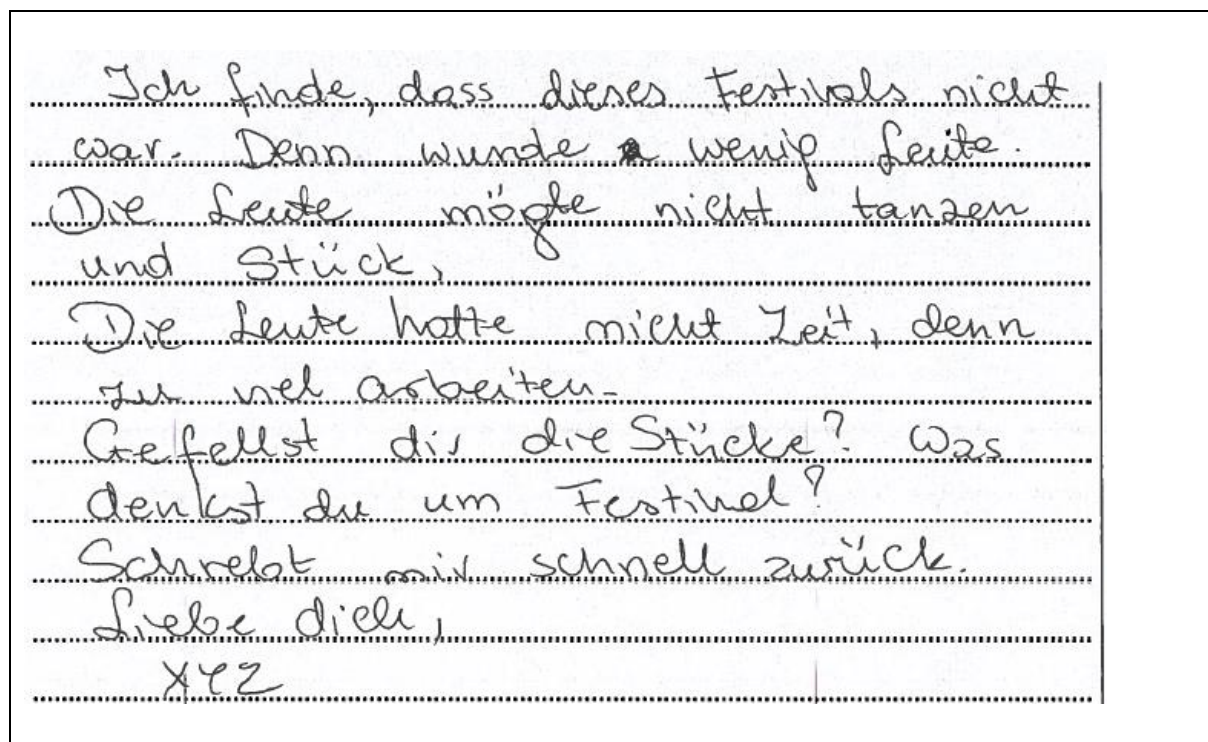 Ich finde, dass dieses Festivals nicht
war. Denn wurde wenig Leute.
Die Leute mögte nicht tanzen
und Stück,
Die Leute hatte nicht Zeit, denn
zu viel arbeiten.
Gefellst dir die Stücke? Was
denkst du um Festival?
Schreibt mir schnell zurück.
Liebe dich,
XYZ